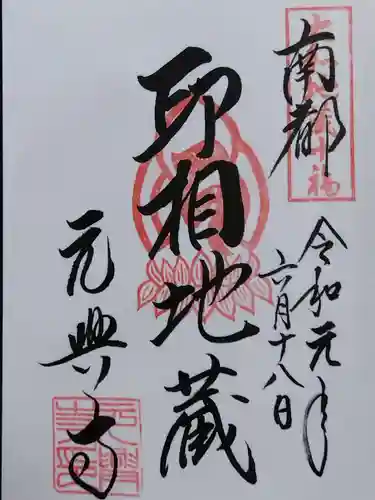 南都
令和元年
六月十八日
印相地蔵
元興寺